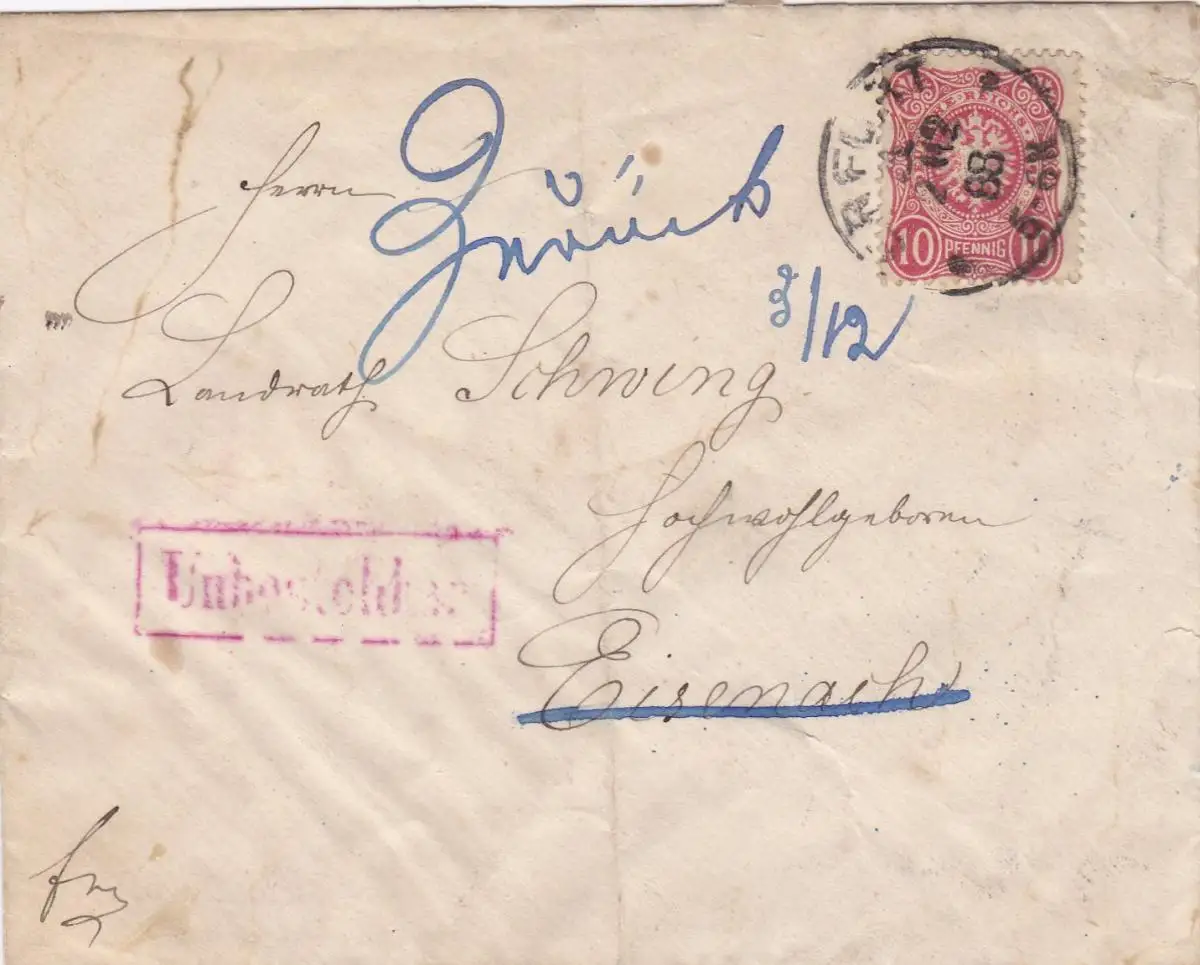 Herrn
Zurück
3/12
Landrath Schwing
Hochwohlgeboren
Eisenach
Unbestellbar
10 PFENNIG 10
88